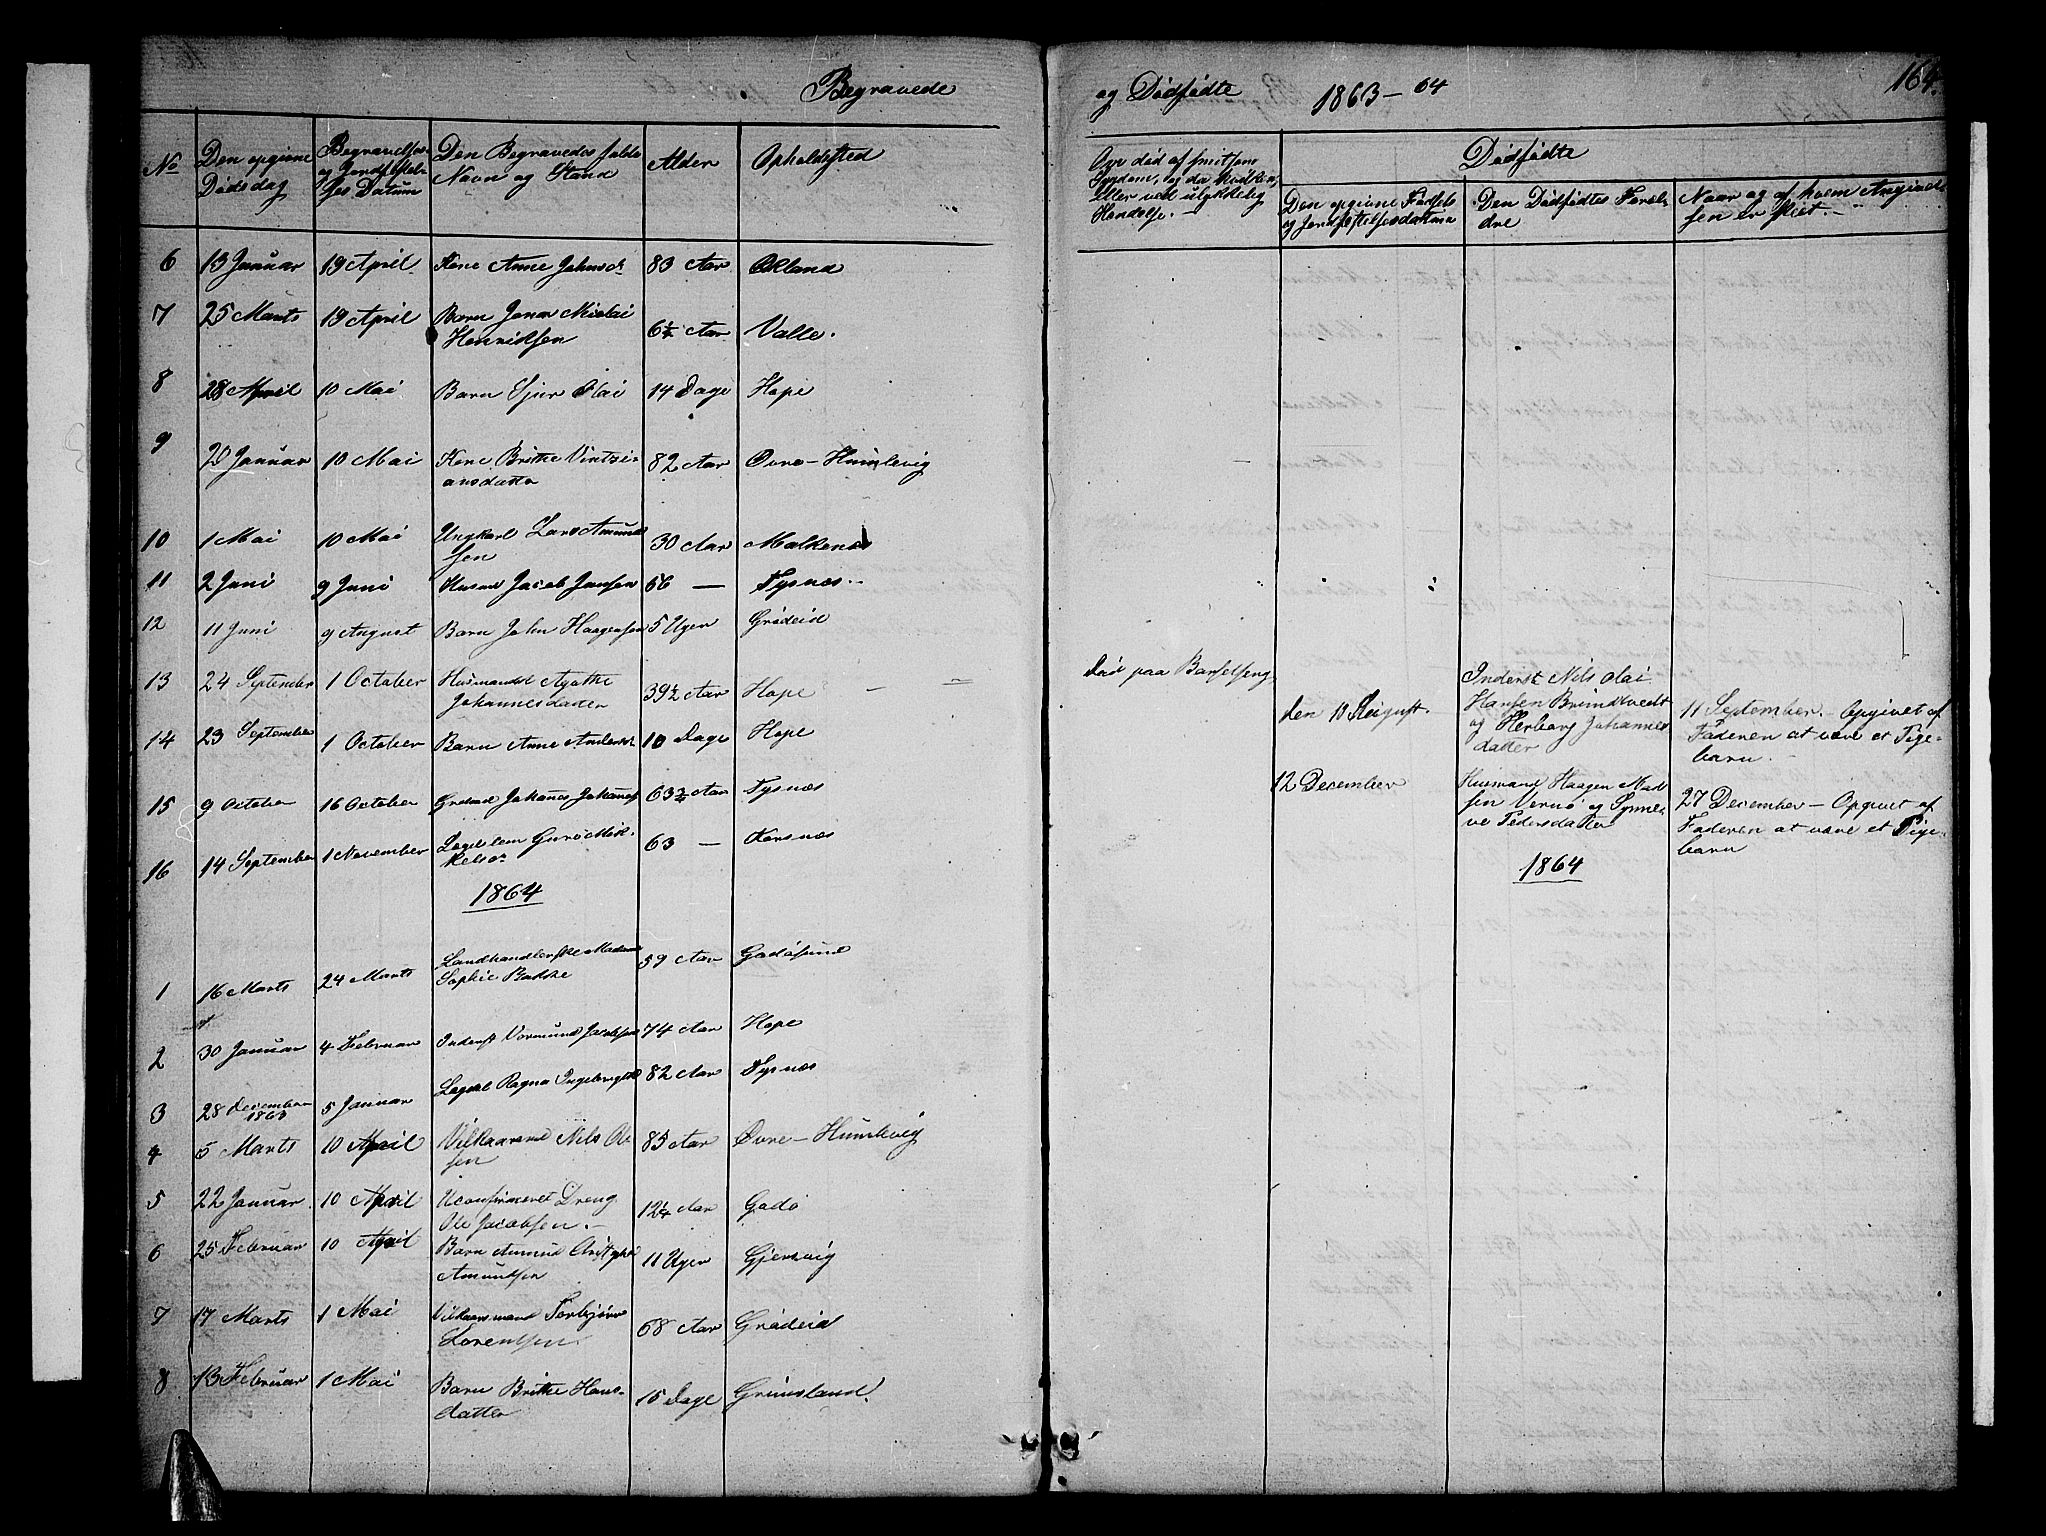 Begravede
No
Den opgivne Dødsdag
Begravelses- og Jordfæstelses Datum
Den Begravedes fulde Navn og Stand
Alder
Opholdssted
6 13 Januar 19 April Kone Anne Johnsd. 83 Aar Økland
7 25 Marts 19 April Barn Jonas Nicolai Henriksen 6½ Aar Valle.
8 28 April 10 Mai Barn Sjur Olai 14 Dage Hope
9 20 Januar 10 Mai Kone Brithe Vintzi-
ansdatter 82 Aar Øvre-Humlevig
10 1 Mai 10 Mai Ungkarl Lars Amund-
sen 30 Aar Malkenæs
11 2 Juni 9 Juni Husmd Jacob Jansen 56 — Tysnæs
12 11 Juni 9 August Barn John Haagensen 5 Uger Grødeid
13 24 September 1 October Husmandsk Agathe
Johannesdatter 39½ Aar Hope
14 23 September 1 October Barn Anne Andersd. 10 Dage Hope
15 9 October 16 October Johanes Johanes 63¾ Aar Tysnæs
16 14 September 1 November Lægdslem Guro Mik-
kelsd. 63 — Korsnæs
1864
1 16 Marts 24 Marts Landhandlerske Madame
Sophie Bakke 59 Aar Godøsund
2 30 Januar 4 Februar Inderst Vormund Jacobsen 74 Aar Hope
3 28 December 1863 5 Januar Lægdsl Ragna Ingebrigtsd 82 Aar Tysnæs
4 5 Marts 10 April Vilkaarsmd Nils Ol-
sen 85 Aar Øvre-Humlevig
5 22 Januar 10 April Uconfirmeret Dreng
Ole Jacobsen. 12¼ Aar Godø
6 25 Februar 10 April Barn Amund
Amundsen 11 Uger Gjersvig
7 17 Marts 1 Mai Vilkaarsmand Torbjørn
Lorentsen 68 Aar Grødeid
8 13 Februar 1 Mai Barn Brithe Hans-
datter 15 Dage Grimsland.
og Dødfødte 1863-64
164.
Om død af smitsom
Sygdom, og da hvilken,
eller ved ulykkelig
Hændelse.
Dødfødte
Den opgivne Fødsels
og Jordfæstelsesdatum
Den Dødfødtes Foræl-
dre
Naar og af hvem Angivel-
sen er skeet.
Død paa Barselseng
den 10 August.
Inderst Nils Olai
Hansen Brindtvedt
og Herborg Johannes-
datter
11 September. Opgivet af
Faderen at være et Pige-
barn.
12 December
Husmand Haagen Mad-
sen Vernø og Synne-
ve Pedersdatter
27 December - Opgivet af
Faderen at være et Pige-
barn
1864